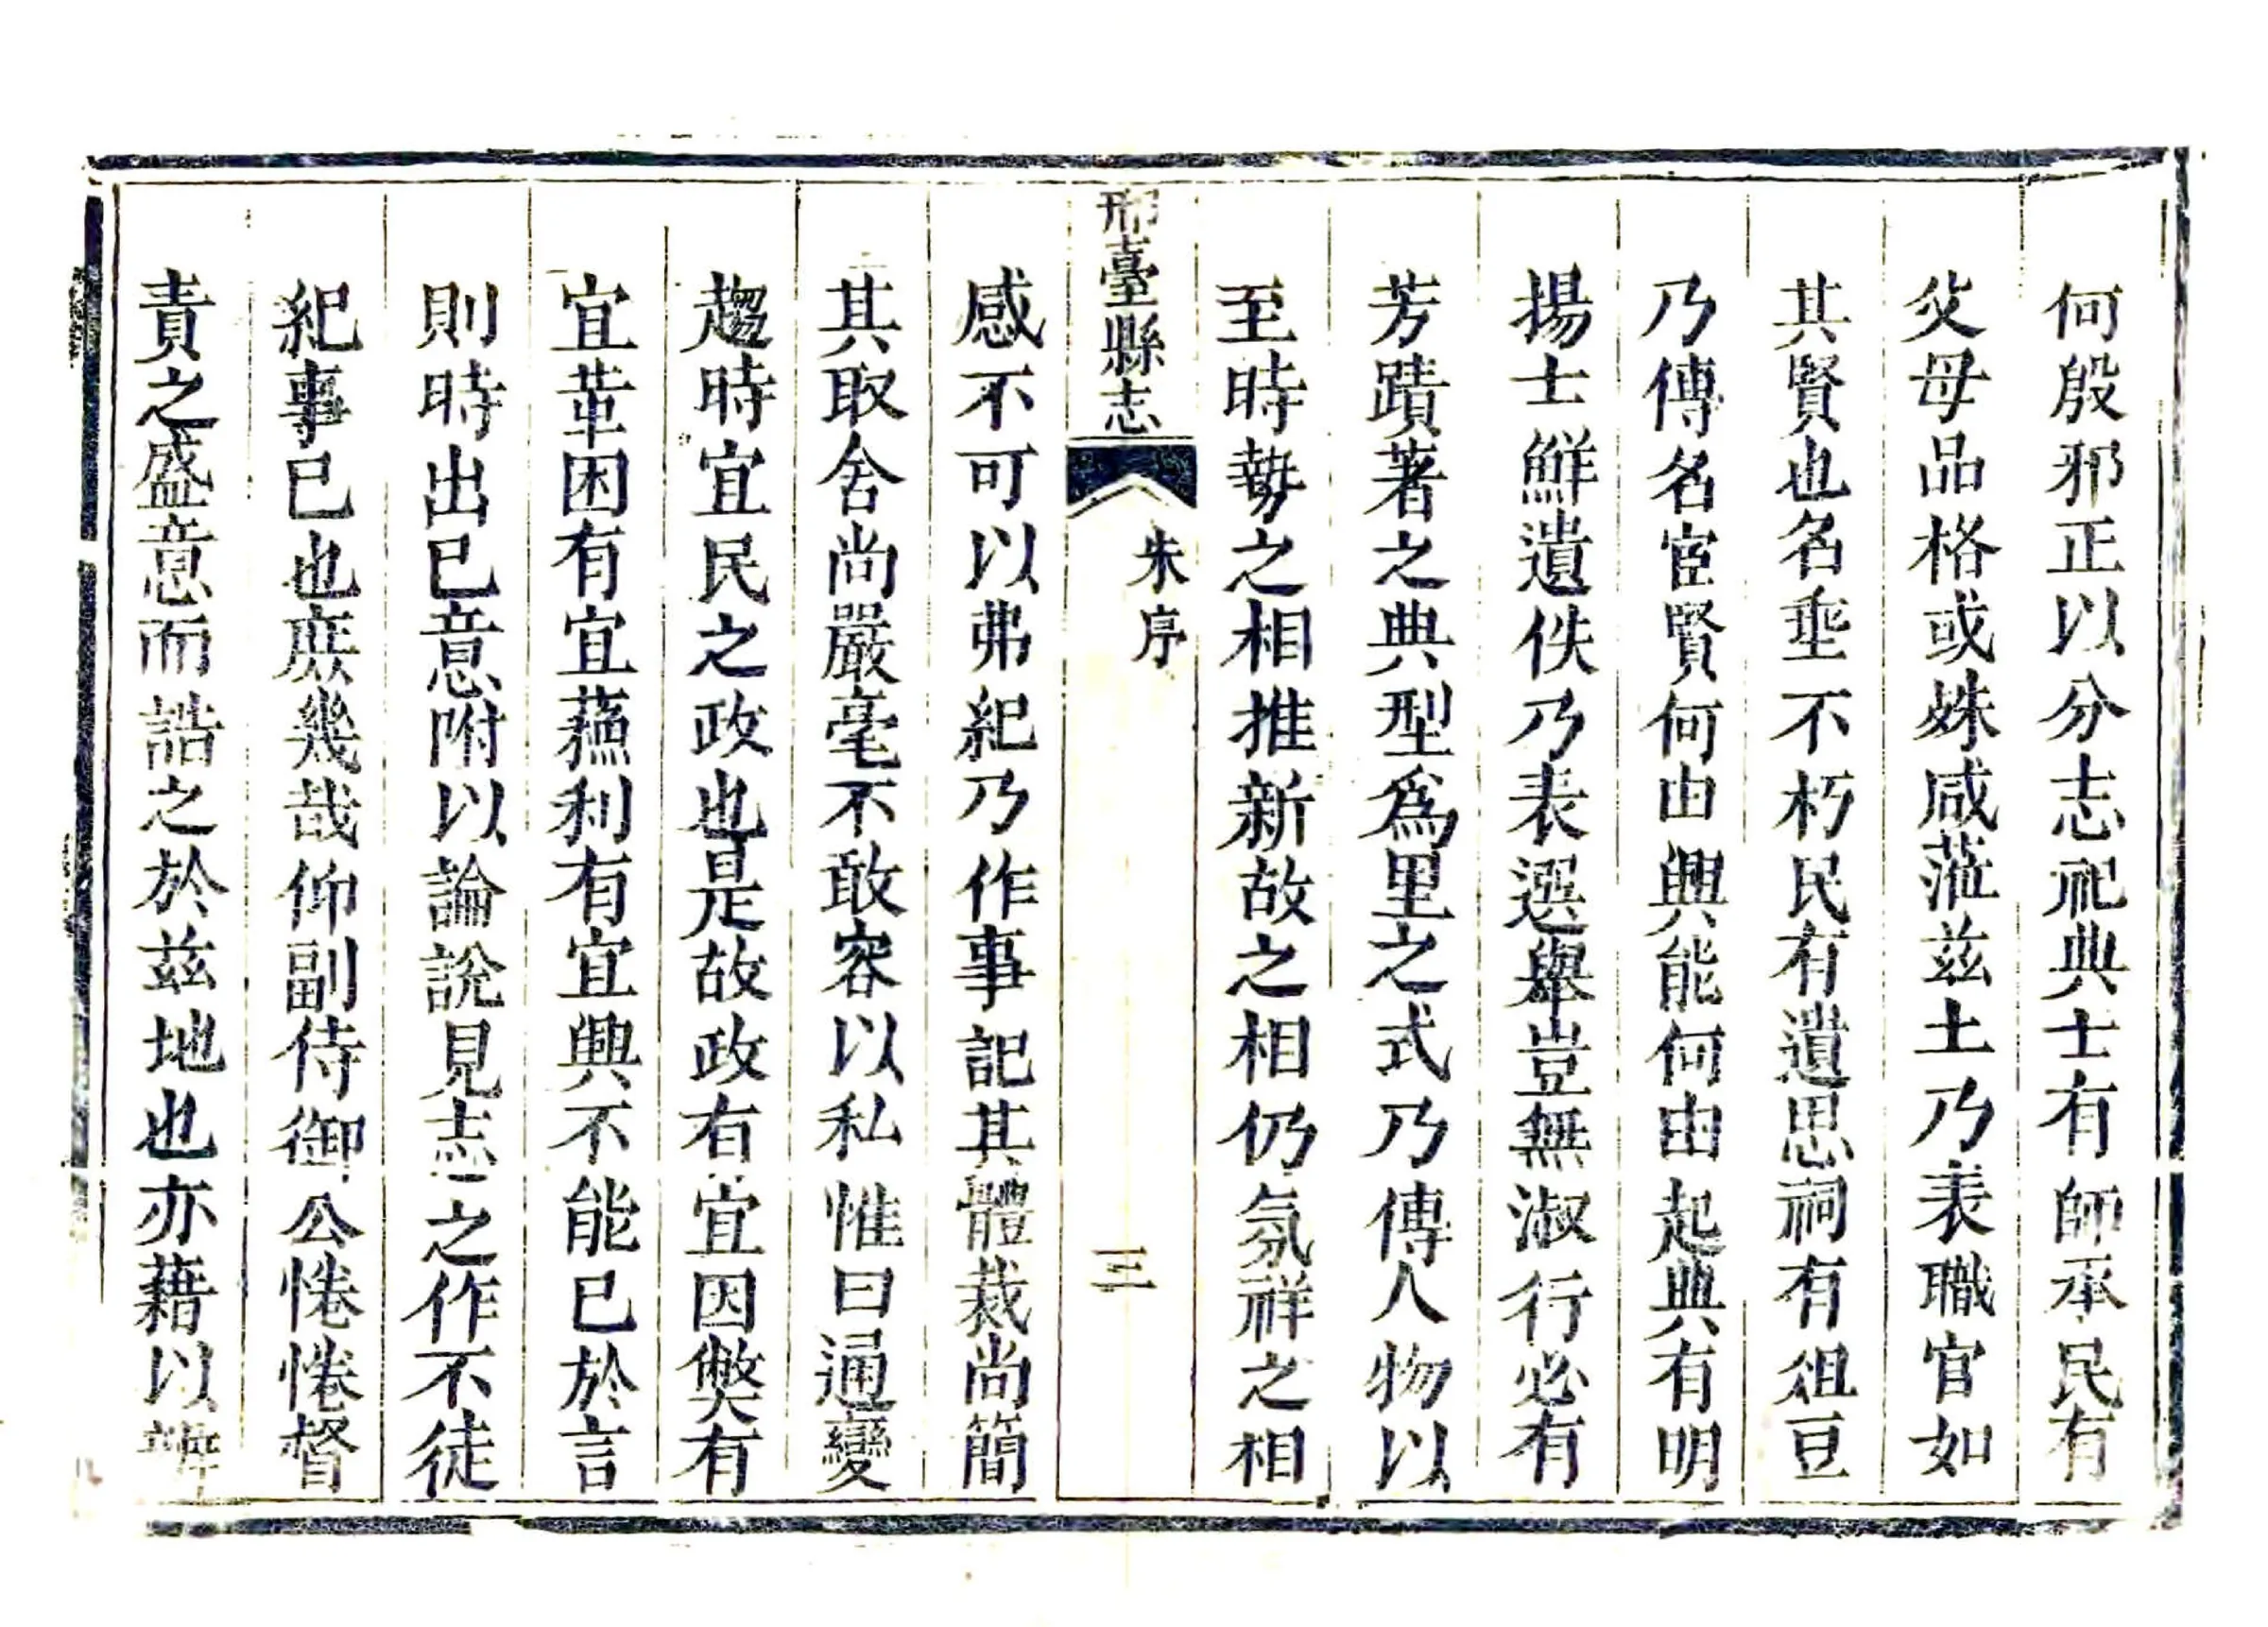 何殷邪正以分志祀典士有師承民有
父母品格或姝咸蒞茲土乃表職官如
其賢也名垂不朽民有遺思祠有俎豆
乃傳名宦賢何由興能何由起典有明
揚士鮮遺佚乃表選舉豈無淑行必有
芳蹟著之典型爲里之式乃傳人物以
至時勢之相推新故之相仍氛祥之相
邢臺縣志
朱序
三
感不可以弗紀乃作事記其體裁尚簡
其取舍尚嚴毫不敢容以私惟曰通變
趨時宜民之政也是故政有宜因獘有
宜革困有宜蘓利有宜興不能已於言
則時出已意附以論說見志之作不徒
紀事已也庶幾哉仰副侍御公惓惓督
責之盛意而誥之於茲地也亦藉以